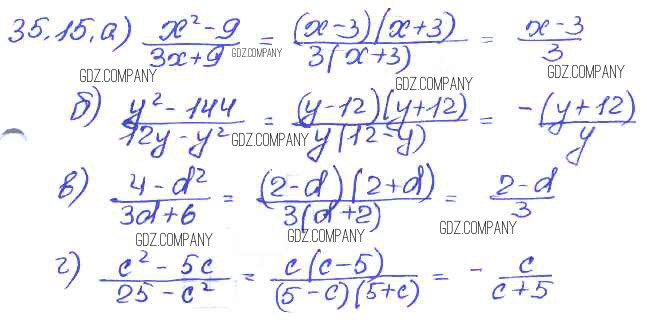 35.15. а) (x² - 9)/(3x + 9) = (x - 3)(x + 3)/3(x + 3) = (x - 3)/3
GDZ.COMPANY
GDZ.COMPANY GDZ.COMPANY
GDZ.COMPANY
б) (y² - 144)/(12y - y²) = (y - 12)(y + 12)/y(12 - y) = -(y + 12)/y
GDZ.COMPANY
в) (4 - d²)/(3d + 6) = (2 - d)(2 + d)/3(d + 2) = (2 - d)/3
GDZ.COMPANY GDZ.COMPANY GDZ.COMPANY
г) (c² - 5c)/(25 - c²) = c(c - 5)/(5 - c)(5 + c) = - c/(c + 5)